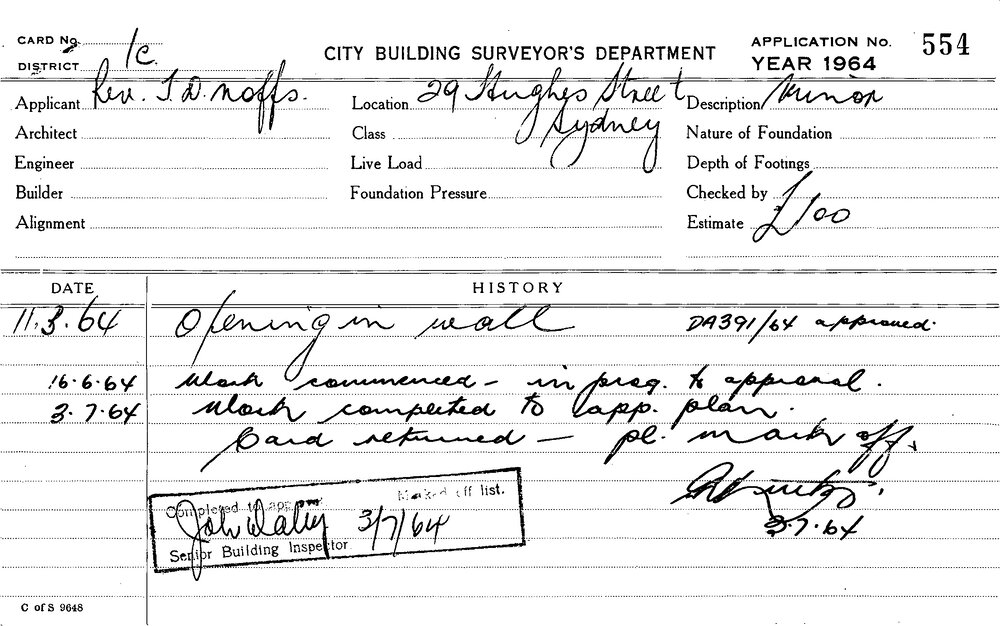 CARD No.
DISTRICT 1c.
CITY BUILDING SURVEYOR'S DEPARTMENT
APPLICATION No. 554
YEAR 1964
Applicant Rev. T. D. Noffs.
Location 29 Hughes Street
Sydney
Description Minor
Architect
Class
Nature of Foundation
Engineer
Live Load
Depth of Footings
Builder
Foundation Pressure
Checked by
Alignment
Estimate £100
DATE HISTORY
11.3.64 Opening in wall DA391/64 approved.
16.6.64 Work commenced - in prog. to approval.
3.7.64 Work completed to app. plan.
Card returned - pl. mark off.
3.7.64
Completed to app Marked off list.
John Daley 3/7/64
Senior Building Inspector
C of S 9648